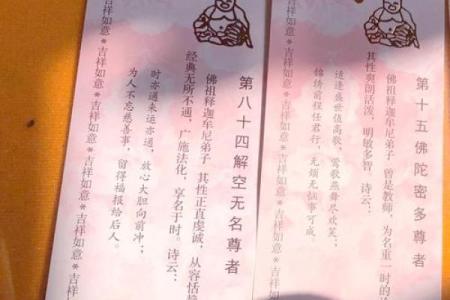 第十五佛陀密多尊者
佛祖释迦牟尼弟子 曾是教师，为名重一时的
其性爽朗活泼，明敏多智，诗云：
适逢盛世值高歌，莺歌燕舞尽欢笑；
锦绣前程任君行，无烦无恼事可成。
吉祥如意＊吉祥如意＊吉祥如意＊吉祥如意＊吉祥如意
第八十四解空无名尊者
佛祖释迦牟尼弟子 其性正直虔诚，从容恬
经典无所不通，广施法化，享名于时。诗云：
时亦通未运亦通，放心大胆向前冲；
为人不忘慈善事，留得福报给后人。
吉祥如意＊吉祥如意＊吉祥如意＊吉祥如意＊吉祥如意